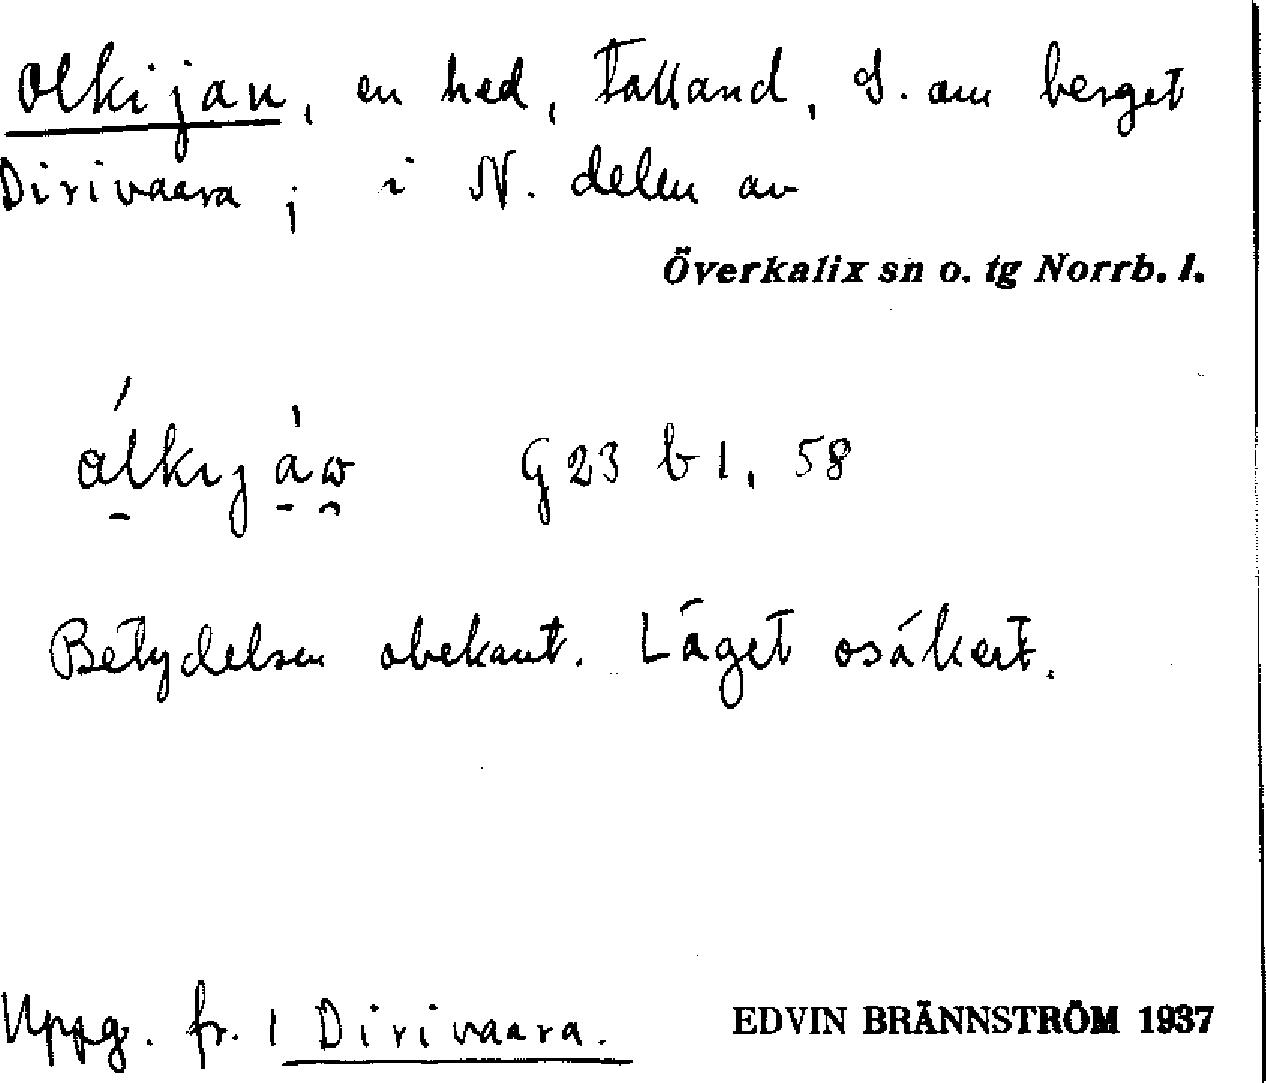 Olkijan, en hed, Talland, S. om berget
Dirivaara; i N. delen av
Överkalix sn o. tg Norrb. l.
G 23 b 1, 58
Betydelsen obekant. Läget osäkert.
Uppg. fr. 1 Dirivaara. EDVIN BRÄNNSTRÖM 1937